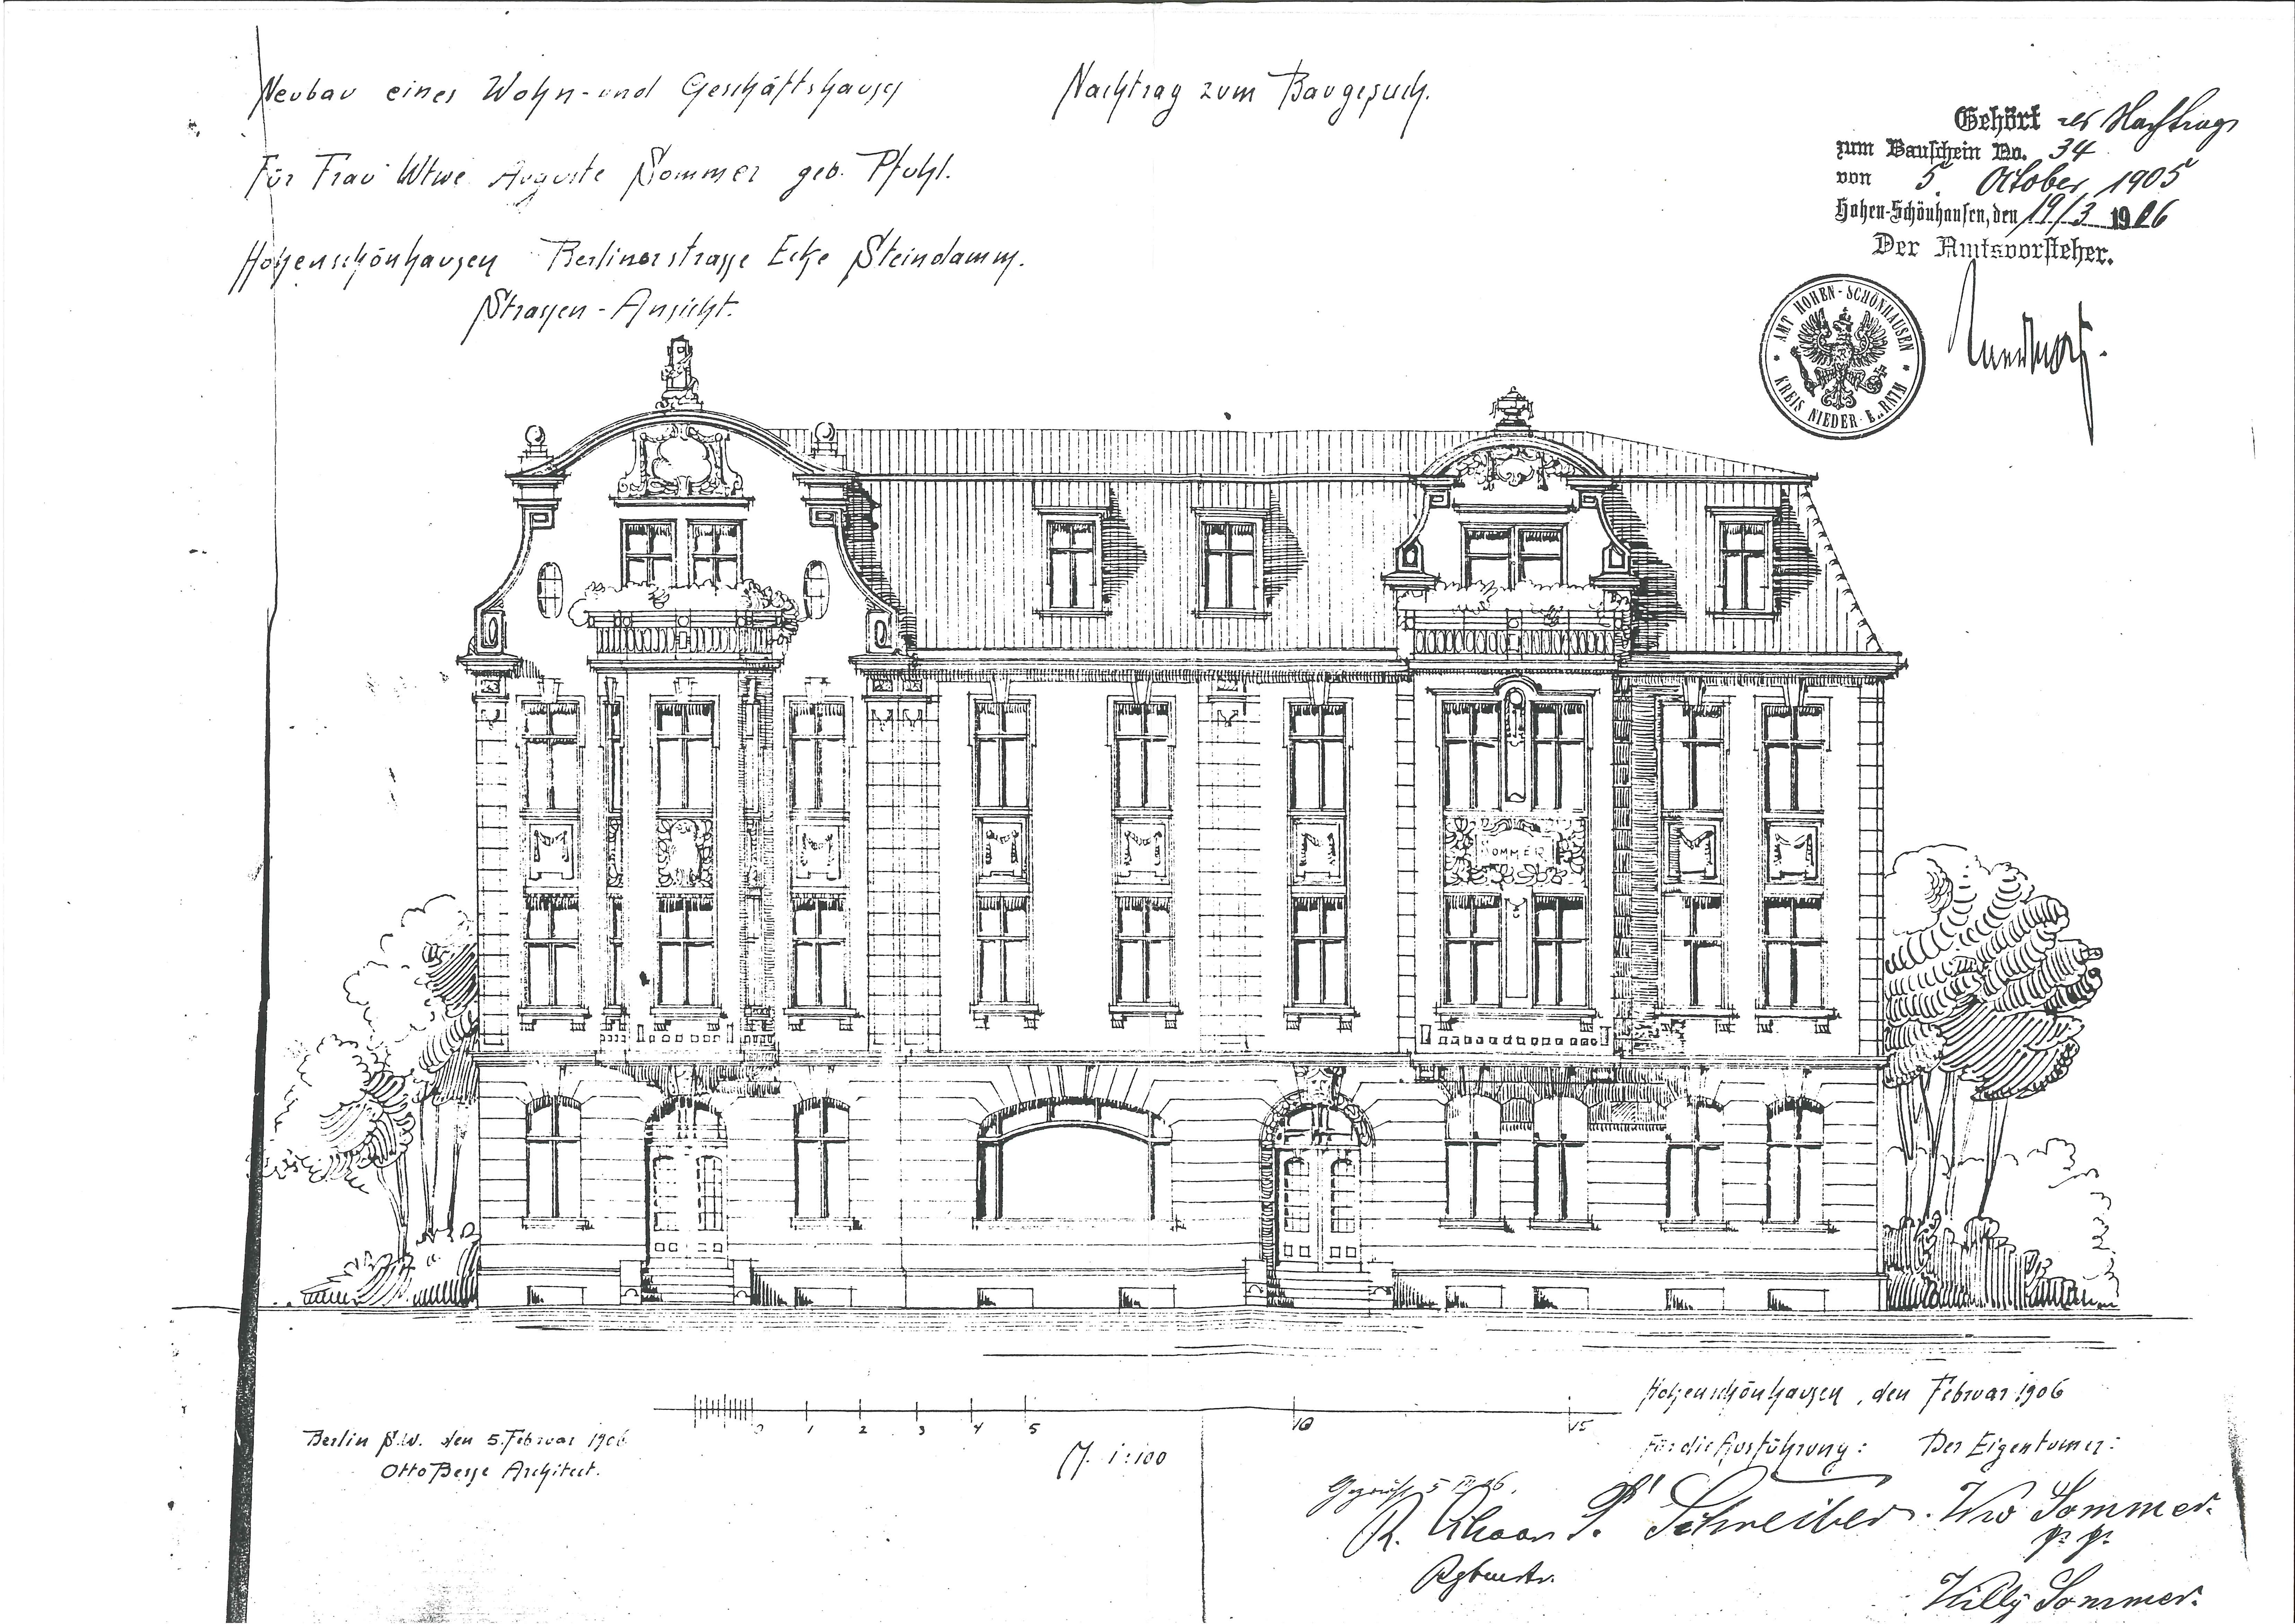 Neubau eines Wohn- und Geschäftshauses
Nachtrag zum Baugesuch.
Für Frau Wtwe Auguste Sommer geb. Pfuhl.
Hohenschönhausen Berlinerstrasse Ecke Steindamm.
Strassen-Ansicht.
Gehört als Nachtrag
zum Bauschein No. 34
von 5. October 1905
Hohen-Schönhausen, den 19/3 1906
Der Amtsvorsteher.
AMT HOHEN-SCHÖNHAUSEN
KREIS NIEDER-BARNIM
SOMMER
0 1 2 3 4 5 10 15
M. 1:100
Berlin S.W. den 5. Februar 1906
Otto Besse Architect.
Hohenschönhausen, den Februar 1906
Für die Ausführung: Der Eigentümer:
Geprüft 5 III 06.
R. P. Schreiber. Ww Sommer.
p. p.
Willy Sommer.